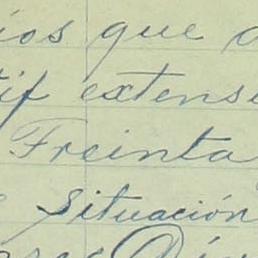 ios que
tif extens
Treinta
Situación